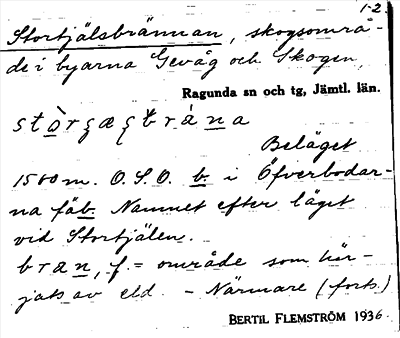 1-2.
Stortjälsbrännan, skogsområ-
de i byarna Gevåg och Skogen,
Ragunda sn och tg, Jämtl. län.
Beläget
1500 m. O.S.O. b. i Öfverbodar-
na fäb. Namnet efter läget
vid Stortjälen.
bran, f. = område som här-
jats av eld. - Närmare (forts.)
BERTIL FLEMSTRÖM 1936.